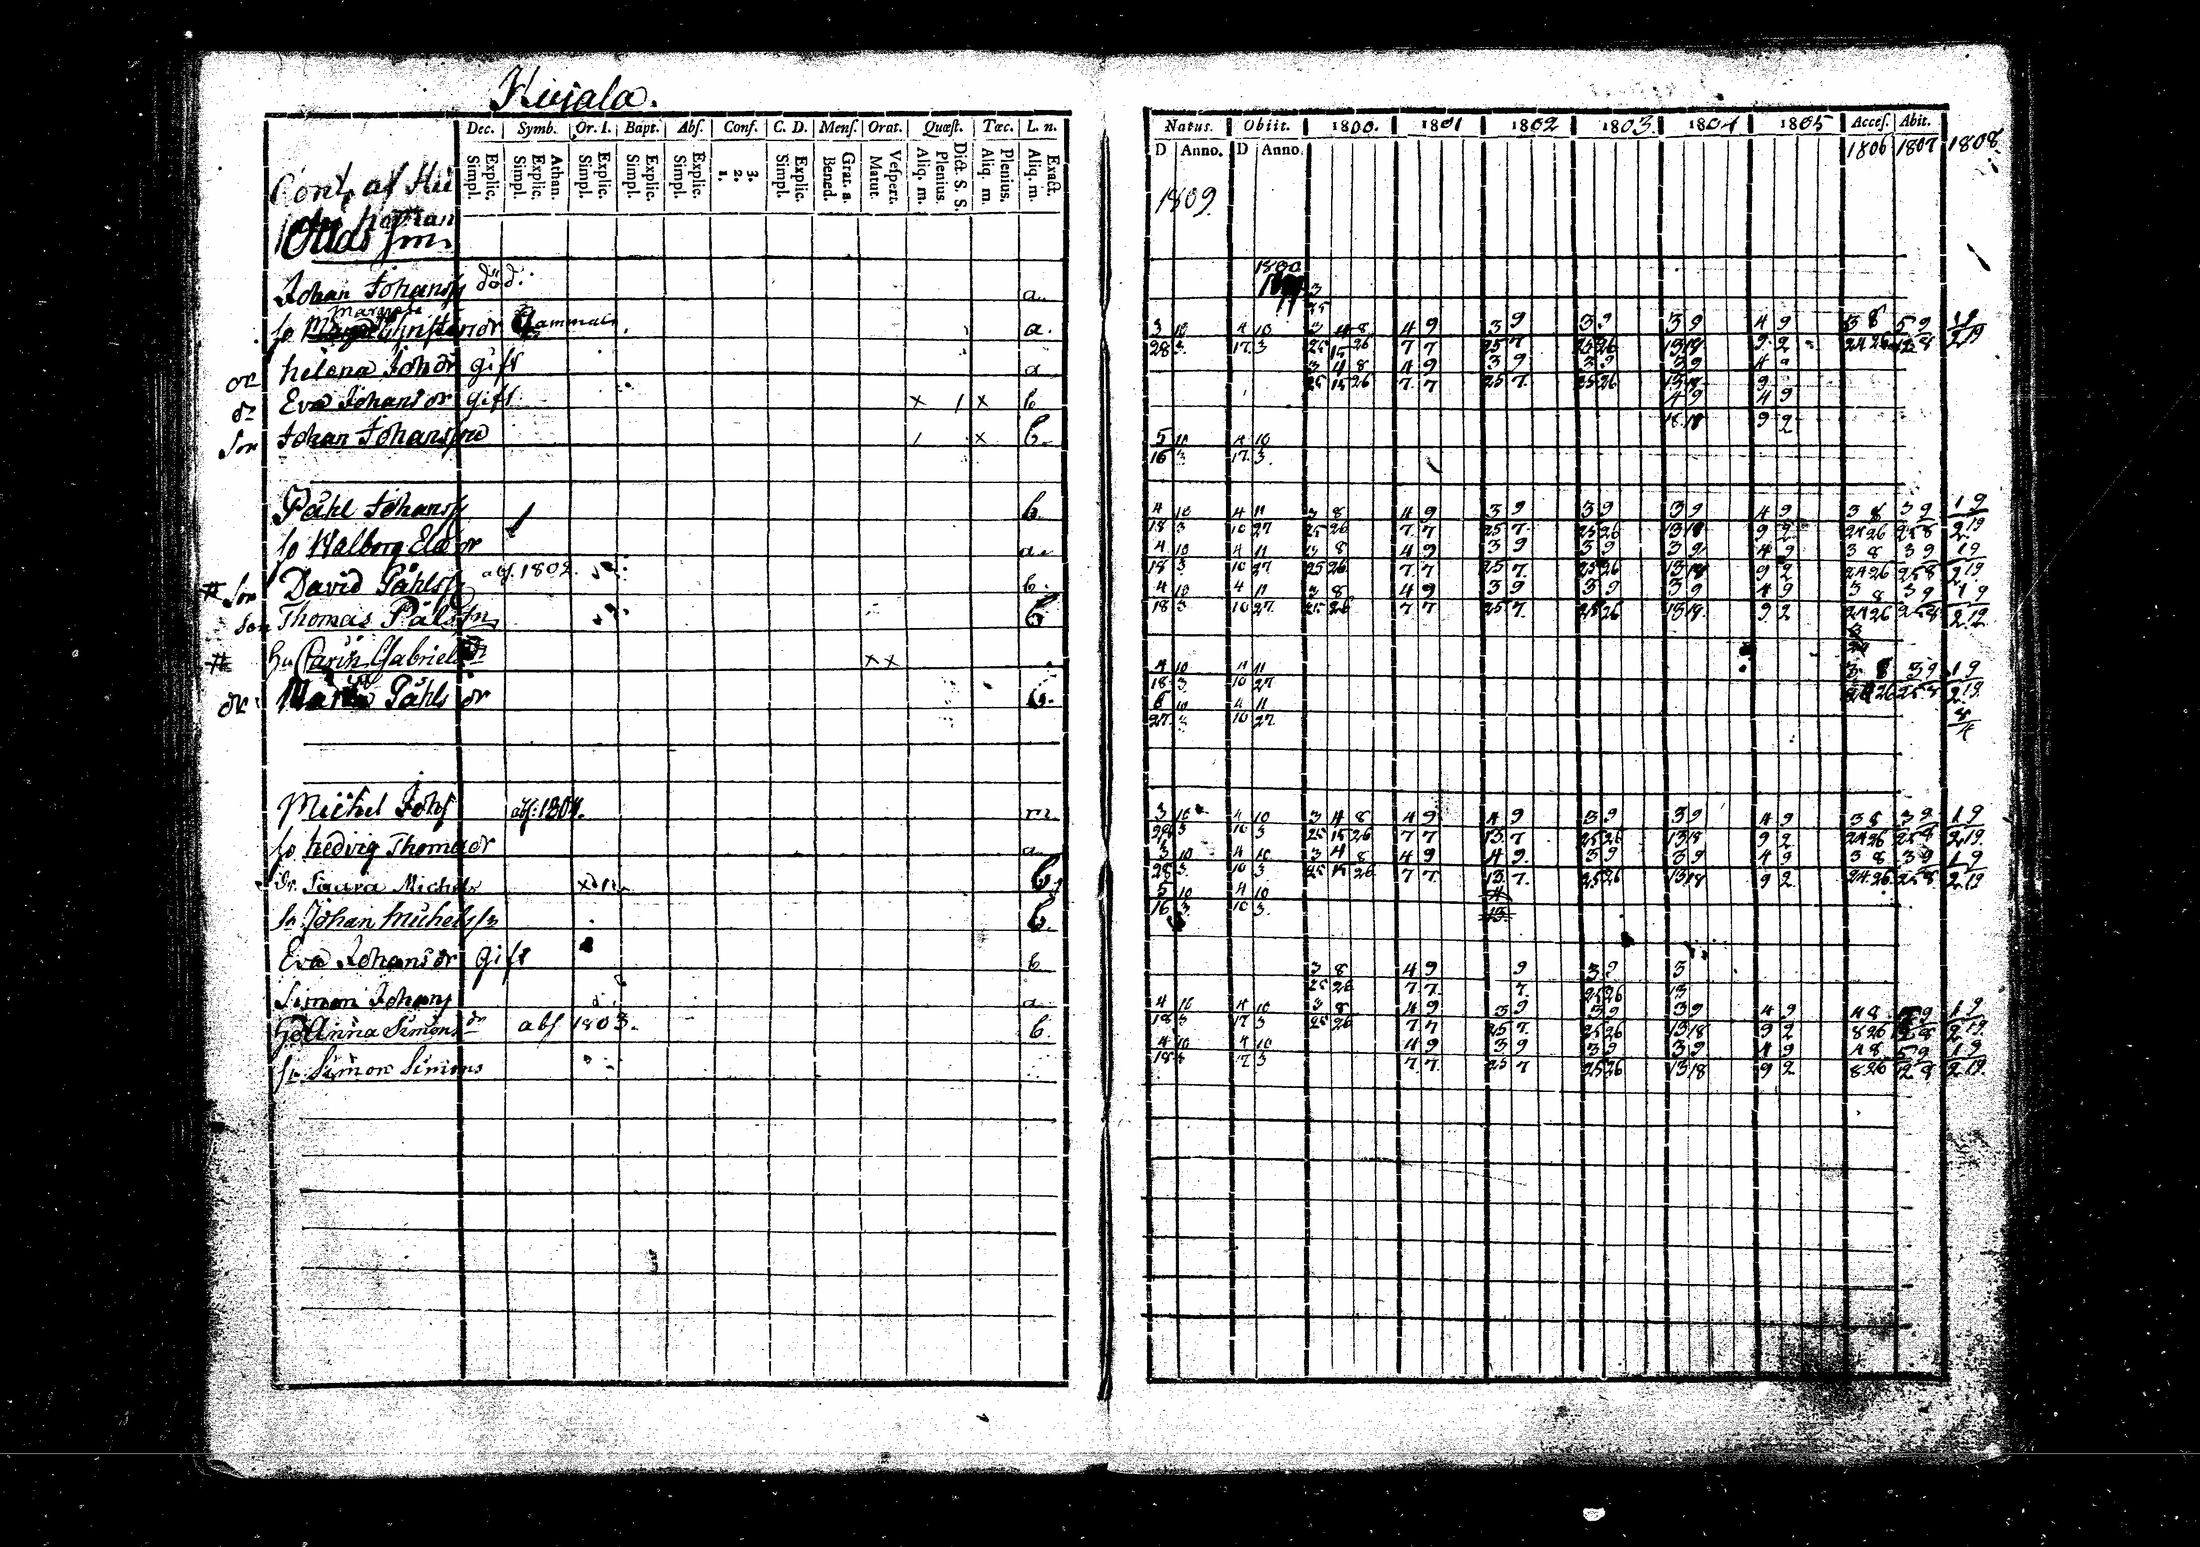 Kujala.
Dec. Symb. Or. I. Bapt. Abſ. Conf. C. D. Menſ. Orat. Quæſt. Tœc. L. n.
Explic. Simpl. Athan. Explic. Simpl. Explic. Simpl. Explic. Simpl. Explic. Simpl. 3. 2. 1. Explic. Simpl. Grat. a. Bened. Veſpert. Matut. Dict. S. S. Plenius. Aliq. m. Plenius. Aliq. m. Exact. Aliq. m.
Cont. af
Johan Johansſ död. a.
ſo Christendr Gammal. a.
dr helena Johdr gift a
dr Eva Johansdr gift x / x b
Son Johan Johansſon / x b.
Påhl Johansſ b
ſo Walborg Elædr a.
# Son David Påhlsſ abſ. 1802. b.
Son Thomas Pålsſn b
# hu Carin Gabrielsdr x x
dr Maria Påhlsdr b.
Michel Johſ abſ. 1804. m.
ſo hedvig Thomædr a
dr. Saara Michels b
ſn Johan Michelsſn b.
Eva Johansdr Gift b
Simon Johansſ a
Ho Anna Simonsdr abſ 1803. b.
ſn Simon Simons
Natus. Obiit. 1800. 1801 1802 1803. 1804 1805 Acceſ. Abit.
D Anno. D Anno. 1806 1807 1808
1809.
1800
3 10 4 10 3 4 8 4 9 3 9 3 9 3 9 4 9 3 8 5 9 1 9
28 3 17 3 25 15 26 7 7 25 7 25 26 13 18 9 2 24 26 12 8 2 19
3 4 8 4 9 3 9 3 9 3 9
25 15 26 7 7 25 7 25 26 13 18 9
4 9 4 9
18 18 9 2
5 10 4 10
16 3 17 3
4 10 4 11 3 8 4 9 3 9 3 9 3 9 4 9 3 8 3 9 1 9
18 3 10 27 25 26 7 7 25 7 25 26 13 18 9 2 24 26 25 8 2 19
4 10 4 11 3 8 4 9 3 9 3 9 3 9 4 9 3 8 3 9 1 9
18 3 10 27 25 26 7 7 25 7 25 26 13 18 9 2 24 26 25 8 2 19
4 10 4 11 3 8 4 9 3 9 3 9 3 9 4 9 3 8 3 9 1 9
18 3 10 27 25 26 7 7 25 7 25 26 13 18 9 2 24 26 25 8 2 19
4 10 4 11 3 8 3 9 1 9
18 3 10 27 24 26 25 8 2 19
6 10 4 11
27 3 10 27
3 10 4 10 3 4 8 4 9 4 9 3 9 3 9 4 9 3 8 3 9 1 9
28 3 10 3 25 15 26 7 7 13 7 25 26 13 18 9 2 24 26 25 8 2 19
3 10 4 10 3 4 8 4 9 4 9 3 9 3 9 4 9 3 8 3 9 1 9
28 3 10 3 25 15 26 7 7 13 7 25 26 13 18 9 2 24 26 25 8 2 19
5 10 4 10
16 3 10 3
3 8 4 9 9 3 9 3
25 26 7 7 7 25 26 13
4 10 4 10 3 8 4 9 3 9 3 9 3 9 4 9 4 8 5 9 1 9
18 3 17 3 25 26 7 7 25 7 25 26 13 18 9 2 8 26 12 8 2 19
4 10 4 10 4 9 3 9 3 9 3 9 4 9 4 8 5 9 1 9
18 3 17 3 7 7 25 7 25 26 13 18 9 2 8 26 12 8 2 19